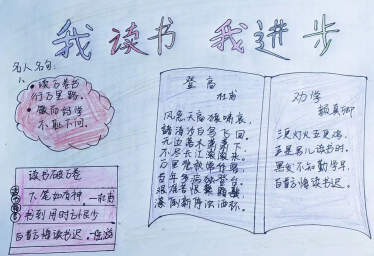 我读书 我进步
名人名句:
读万卷书
行万里路。
敏而好学
不耻下问。
读书破万卷
下笔如有神。—杜甫
书到用时方恨少
白首方悔读书迟。
登高
杜甫
风急天高猿啸哀,
渚清沙白鸟飞回。
无边落木萧萧下,
不尽长江滚滚来。
万里悲秋常作客,
百年多病独登台。
艰难苦恨繁霜鬓,
潦倒新停浊酒杯。
劝学
颜真卿
三更灯火五更鸡,
正是男儿读书时。
黑发不知勤学早,
白首方悔读书迟。